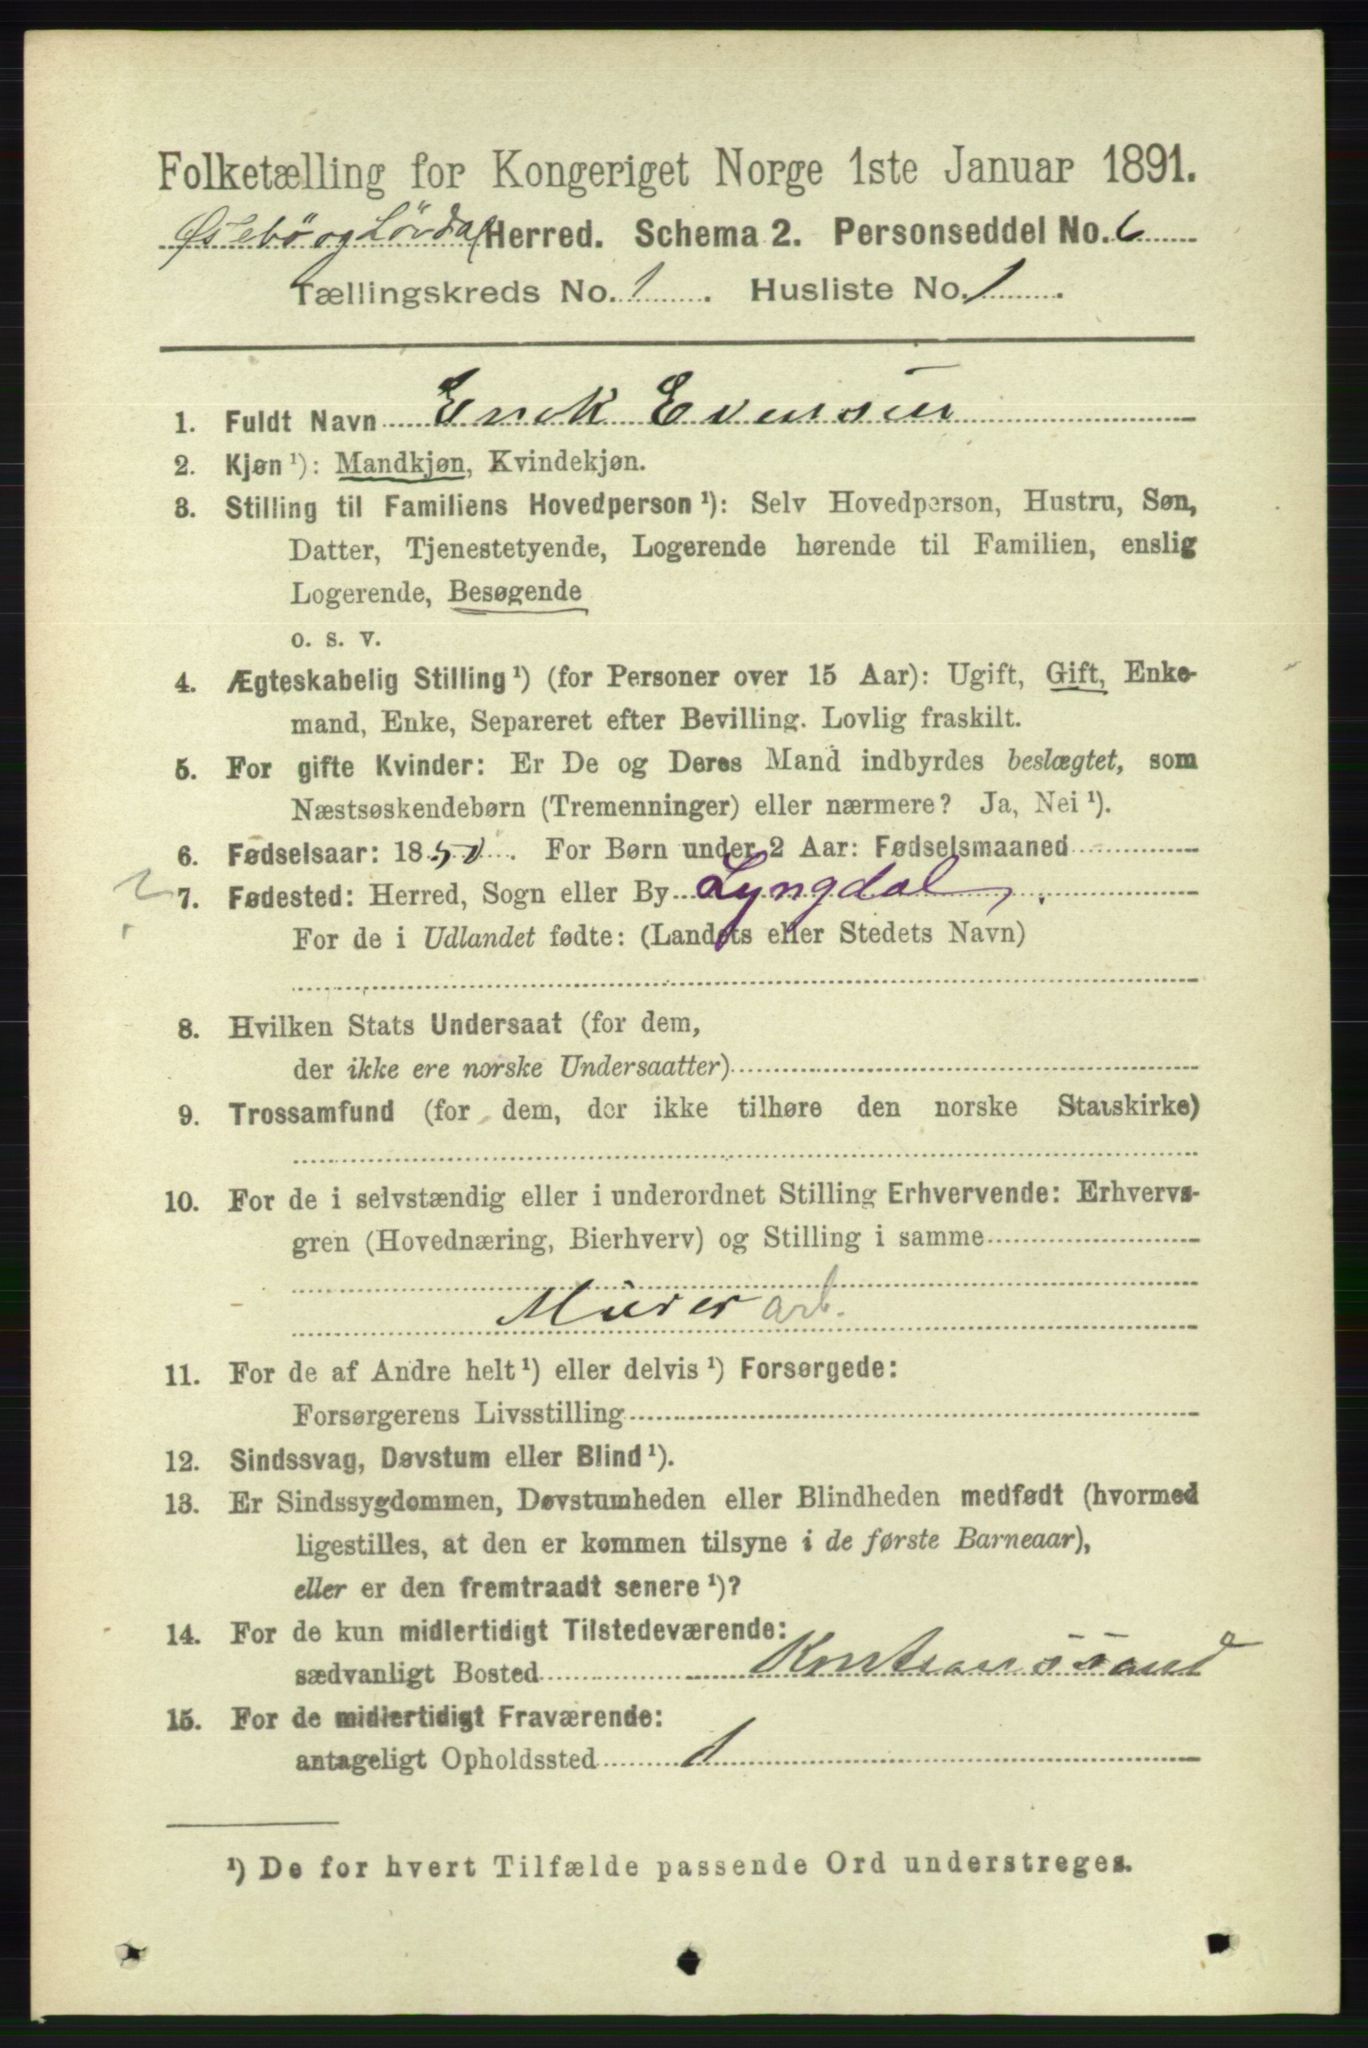 Folketælling for Kongeriget Norge 1ste Januar 1891.
Øslebø og Løvdal Herred. Schema 2. Personseddel No. 6
Tællingskreds No. 1. Husliste No. 1.
1. Fuldt Navn Erick Evensen
2. Kjøn¹): Mandkjøn, Kvindekjøn.
3. Stilling til Familiens Hovedperson¹): Selv Hovedperson, Hustru, Søn,
Datter, Tjenestetyende, Logerende hørende til Familien, enslig
Logerende, Besøgende
o. s. v.
4. Ægteskabelig Stilling¹) (for Personer over 15 Aar): Ugift, Gift, Enke-
mand, Enke, Separeret efter Bevilling. Lovlig fraskilt.
5. For gifte Kvinder: Er De og Deres Mand indbyrdes beslægtet, som
Næstsøskendebørn (Tremenninger) eller nærmere? Ja, Nei¹).
6. Fødselsaar: 1850. For Børn under 2 Aar: Fødselsmaaned
? 7. Fødested: Herred, Sogn eller By Lyngdal,
For de i Udlandet fødte: (Landets eller Stedets Navn)
8. Hvilken Stats Undersaat (for dem,
der ikke ere norske Undersaatter)
9. Trossamfund (for dem, der ikke tilhøre den norske Statskirke)
10. For de i selvstændig eller i underordnet Stilling Erhvervende: Erhvervs-
gren (Hovednæring, Bierhverv) og Stilling i samme
Murer arb.
11. For de af Andre helt¹) eller delvis¹) Forsørgede:
Forsørgerens Livsstilling
12. Sindssvag, Døvstum eller Blind¹).
13. Er Sindssygdommen, Døvstumheden eller Blindheden medfødt (hvormed
ligestilles, at den er kommen tilsyne i de første Barneaar),
eller er den fremtraadt senere¹)?
14. For de kun midlertidigt Tilstedeværende:
sædvanligt Bosted Kristianssand
15. For de midlertidigt Fraværende:
antageligt Opholdssted
¹) De for hvert Tilfælde passende Ord understreges.